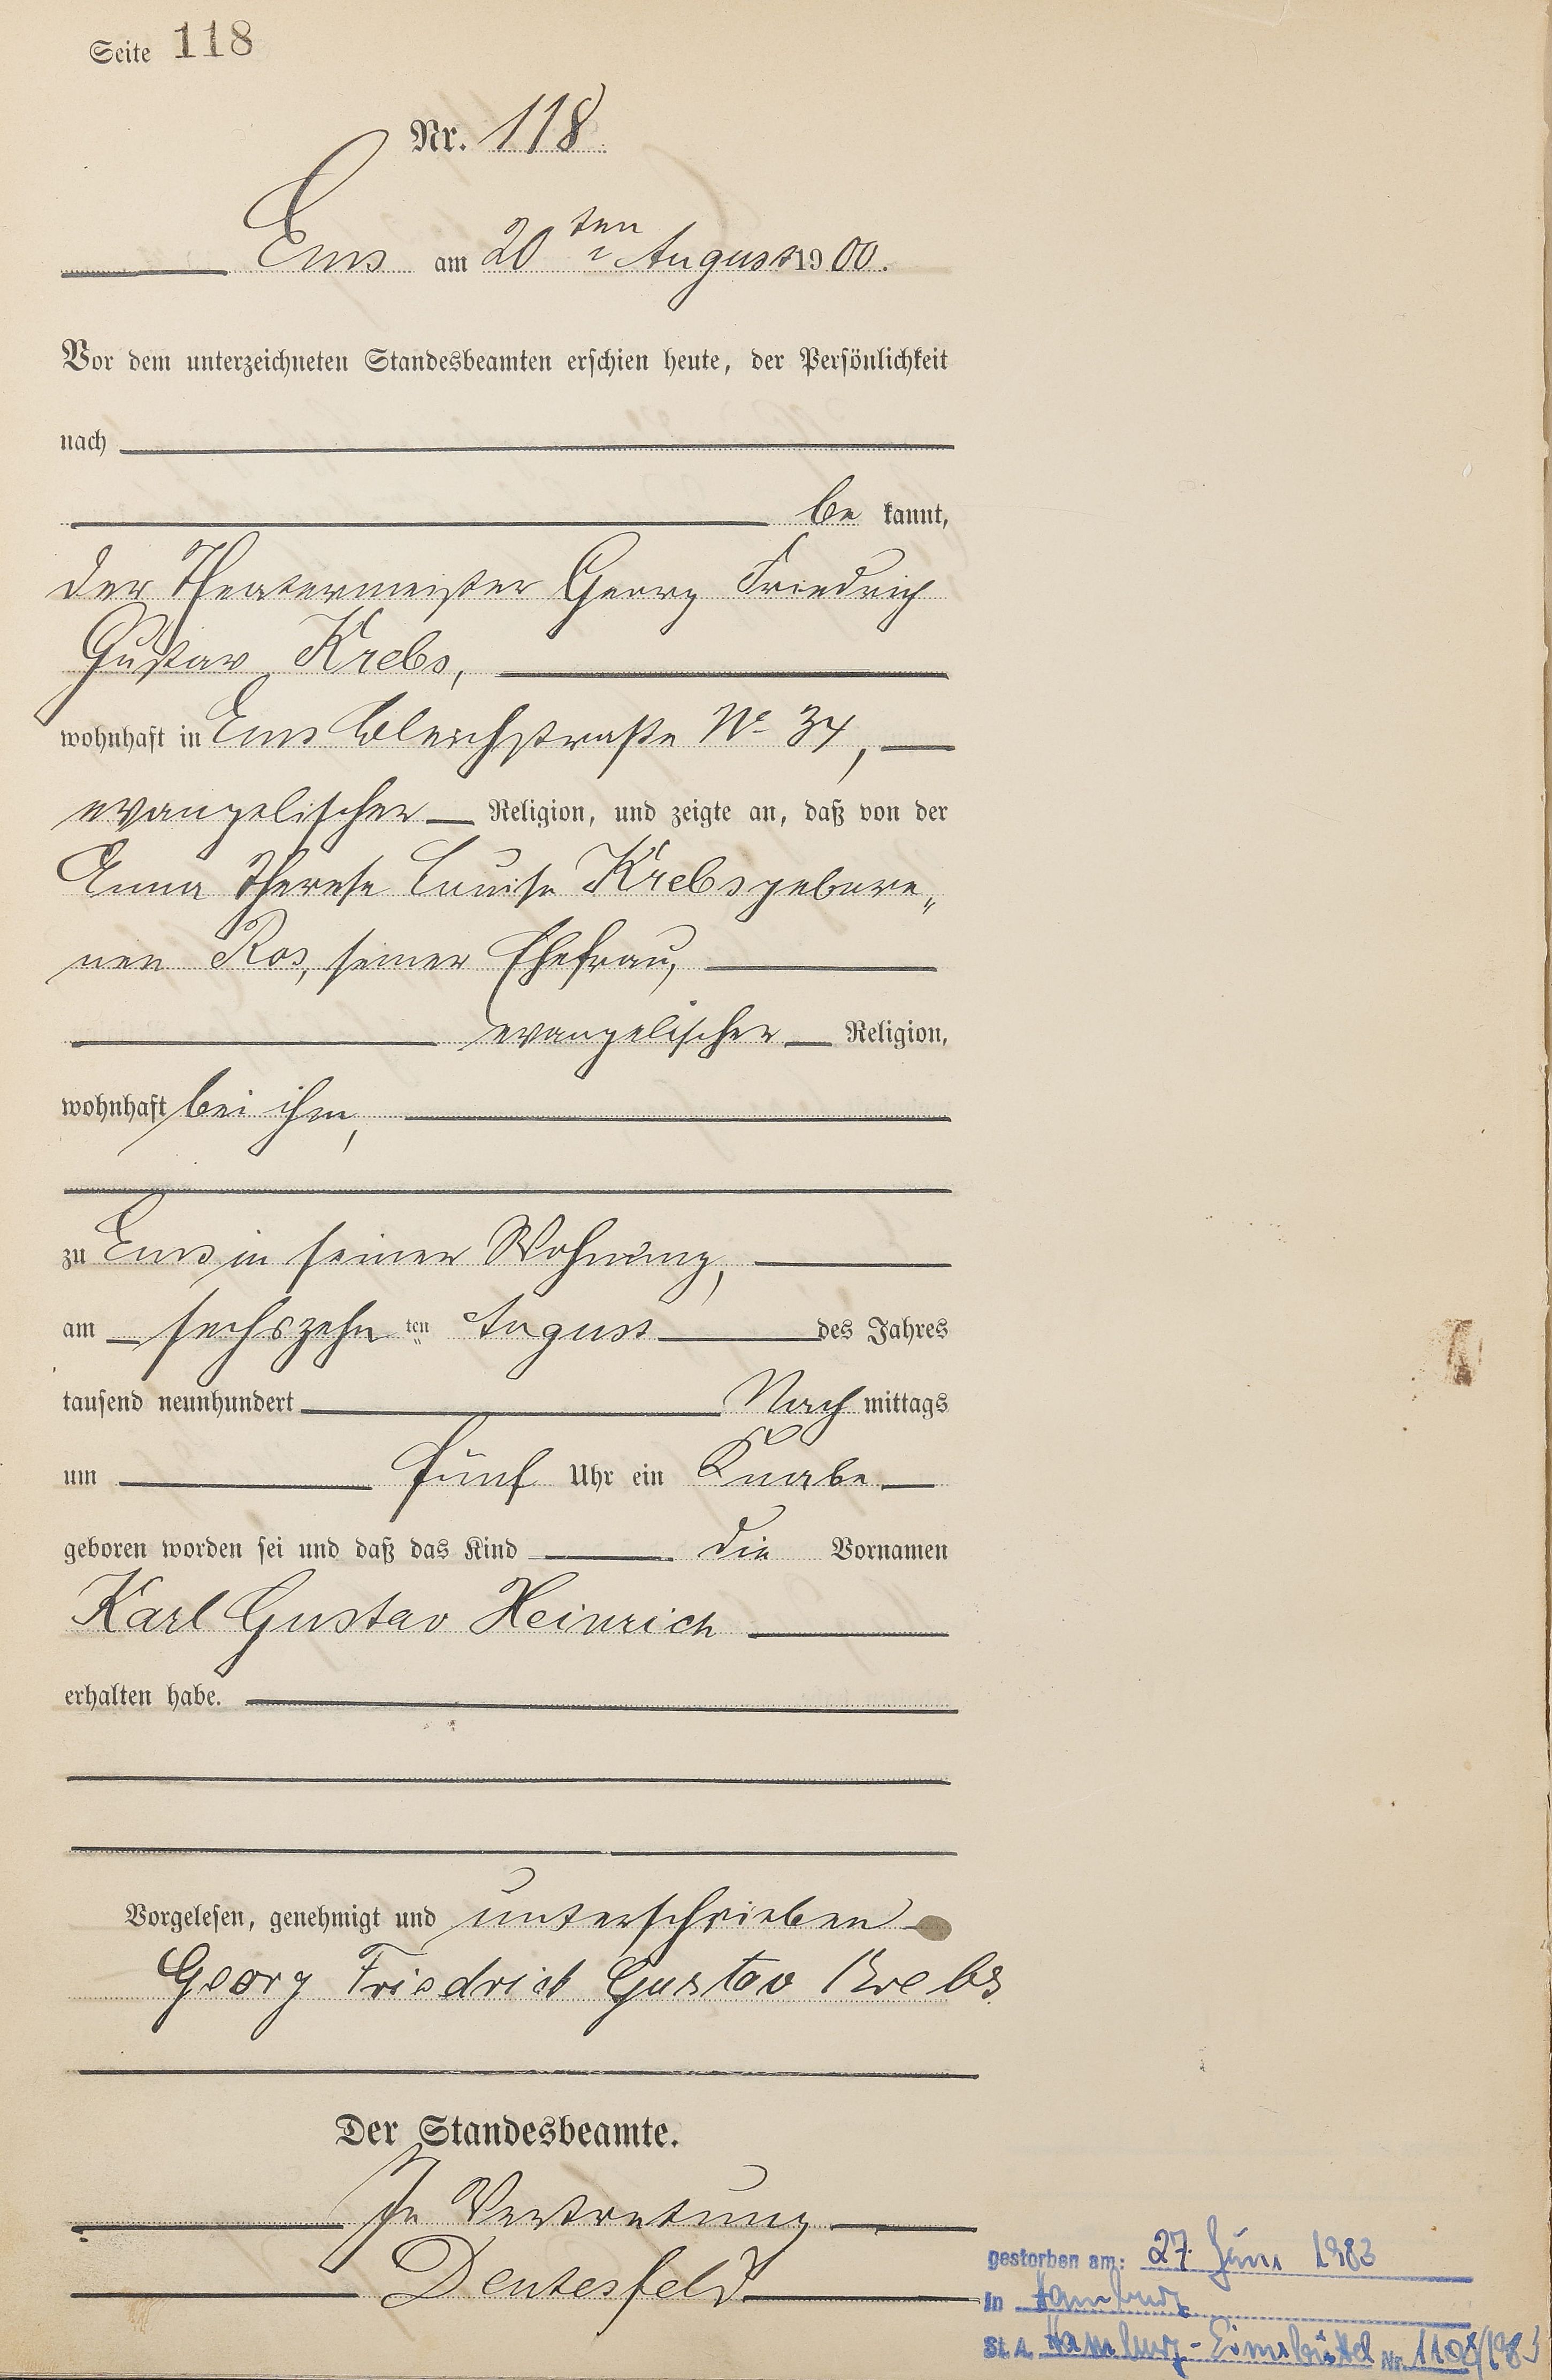 Seite 118
Nr. 118.
Ems am 20ten August 1900.
Vor dem unterzeichneten Standesbeamten erschien heute, der Persönlichkeit
nach
be kannt,
der Theatermeister Georg Friedrich
Gustav Krebs,
wohnhaft in Ems Bleichstraße No 34,
evangelischer Religion, und zeigte an, daß von der
Anna Therese Louise Krebs gebore„
nen Ros, seiner Ehefrau,
evangelischer Religion,
wohnhaft bei ihm,
zu Ems in seiner Wohnung,
am sechszehnten August des Jahres
tausend neunhundert Nachmittags
um fünf Uhr ein Knabe
geboren worden sei und daß das Kind die Vornamen
Karl Gustav Heinrich
erhalten habe.
Vorgelesen, genehmigt und unterschrieben
Georg Friedrich Gustav Krebs
Der Standesbeamte.
In Vertretung
Deutesfeld
gestorben am: 27. Juni 1983
in Hamburg
St. A. Hamburg-Eimsbüttel Nr. 1108/1983